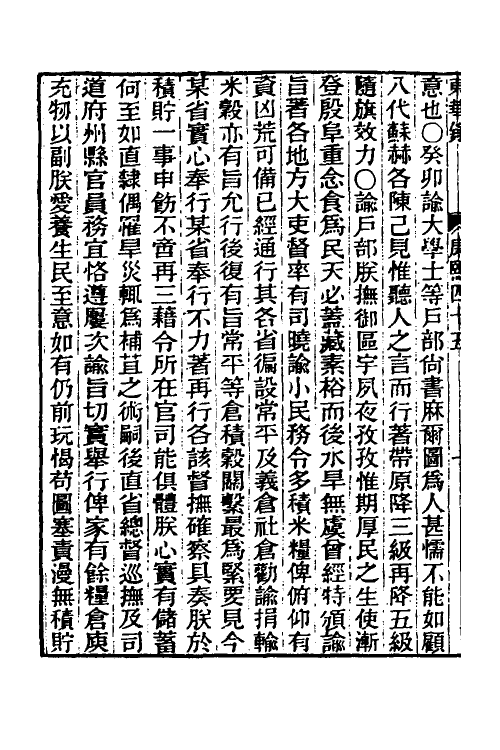 東華錄 康熙四十五 七
意也〇癸卯諭大學士等戶部尚書麻爾圖爲人甚懦不能如顧
八代蘇赫各陳己見惟聽人之言而行著帶原降三級再降五級
隨旗效力〇諭戶部朕撫御區宇夙夜孜孜惟期厚民之生使漸
登殷阜重念食爲民天必蓋藏素裕而後水旱無虞曾經特頒諭
旨著各地方大吏督率有司曉諭小民務令多積米糧俾俯仰有
資凶荒可備已經通行其各省徧設常平及義倉社倉勸諭捐輸
米穀亦有旨允行後復有旨常平等倉積穀關繫最爲緊要見今
某省實心奉行某省奉行不力著再行各該督撫確察具奏朕於
積貯一事申飭不啻再三藉令所在官司能俱體朕心實有儲蓄
何至如直隸偶罹旱災輒爲補苴之術嗣後直省總督巡撫及司
道府州縣官員務宜恪遵屢次諭旨切實舉行俾家有餘糧倉庾
充牣以副朕愛養生民至意如有仍前玩愒苟圖塞責漫無積貯